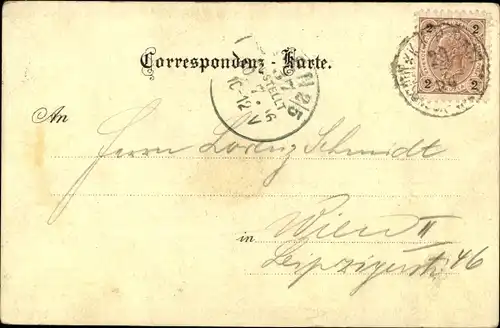 Correspondenz - Karte.
BESTELLT
10-12V
25
2 2
An
Herrn Lorenz Schmidt
in Wien II
Leipzigerstr. 46